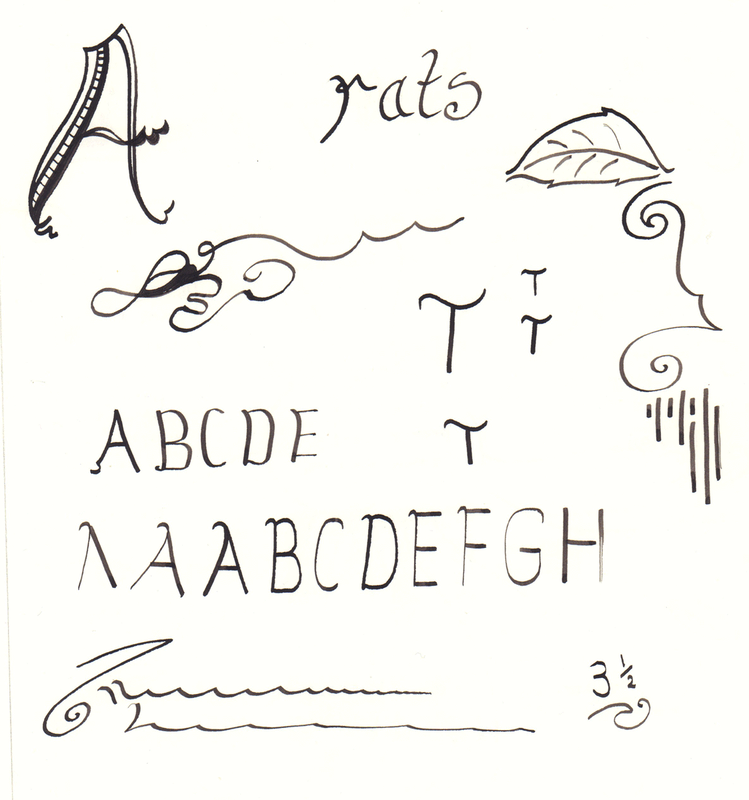 A
rats
T
T
T
ABCDE
T
AAABCDEFGH
3 1/2